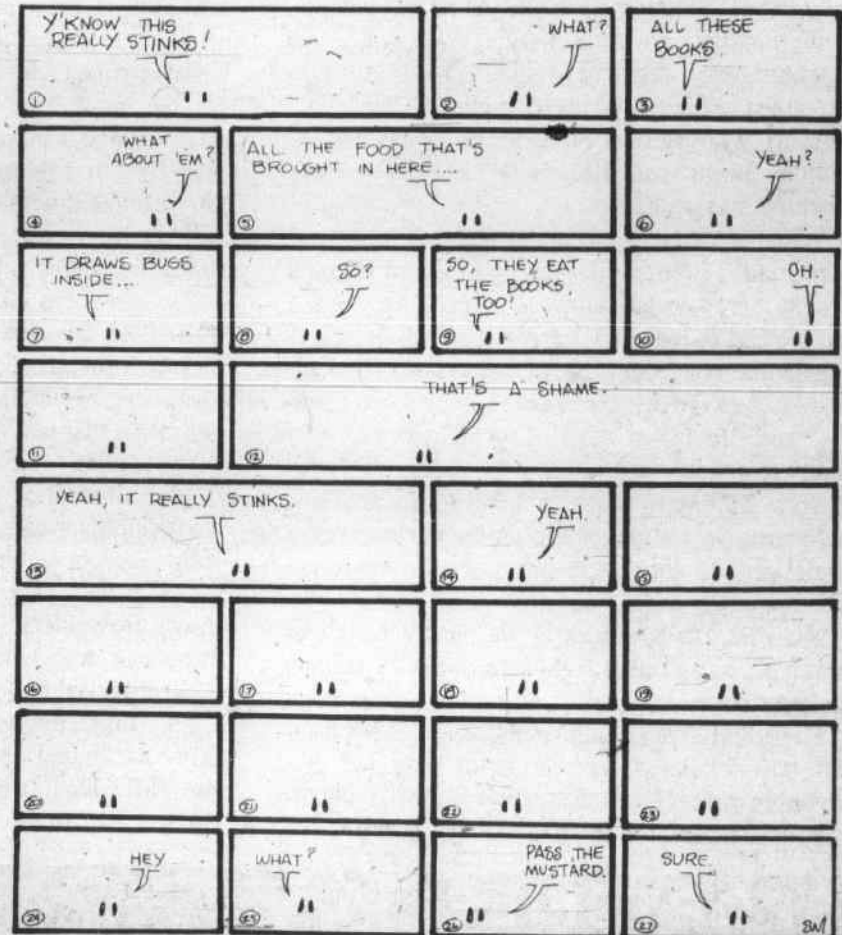 Y'KNOW THIS
REALLY STINKS!
①
WHAT?
②
ALL THESE
BOOKS
③
WHAT
ABOUT 'EM?
④
ALL THE FOOD THAT'S
BROUGHT IN HERE....
⑤
YEAH?
⑥
IT DRAWS BUGS
INSIDE...
⑦
SO?
⑧
SO, THEY EAT
THE BOOKS,
TOO!
⑨
OH.
⑩
⑪
THAT'S A SHAME.
⑫
YEAH, IT REALLY STINKS.
⑬
YEAH.
⑭
⑮
⑯
⑰
⑱
⑲
⑳
㉑
㉒
㉓
HEY
㉔
WHAT?
㉕
PASS THE
MUSTARD.
㉖
SURE.
㉗